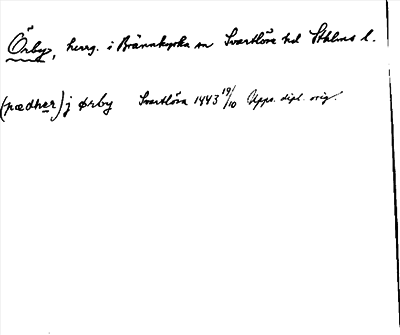 Örby, herrg. i Brännkyrka sn Svartlösa hd Sthlms l.
(pædhær) j Ørby Svartlösa 1443 19/10 Upps. dipl. orig.